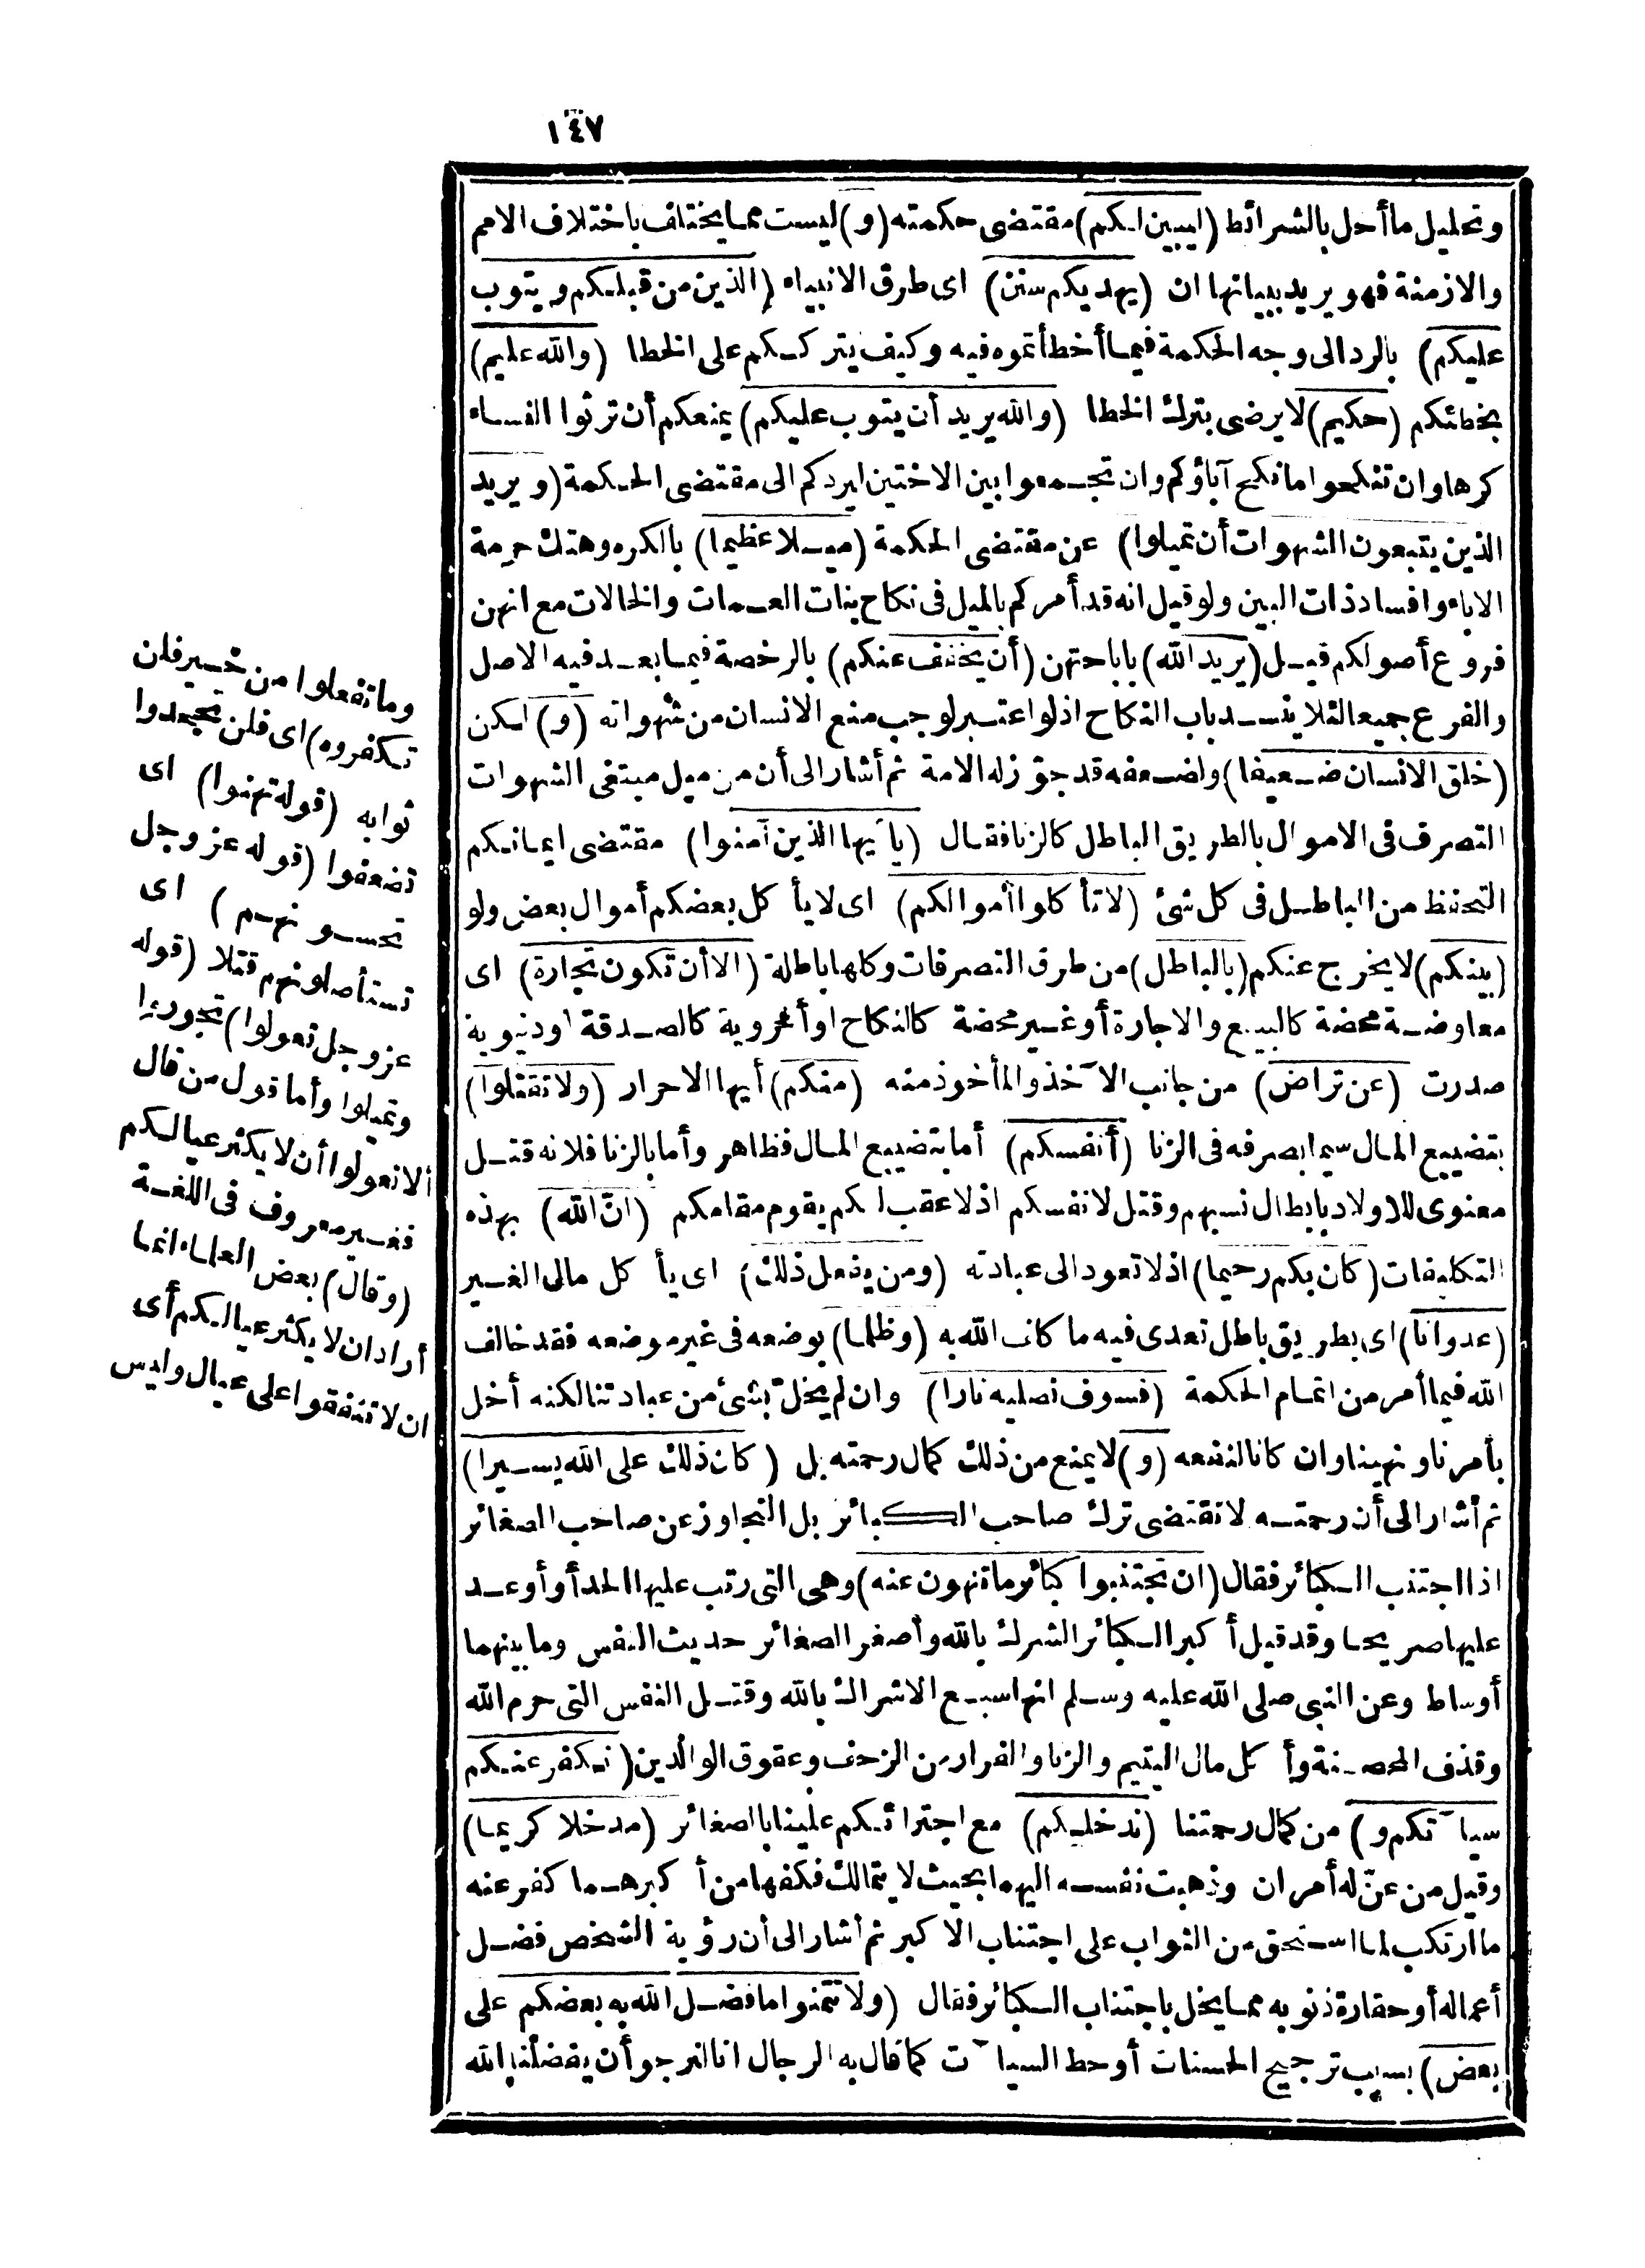 ١٤٧
وتحليل ما أحل بالشرائط (ليبين لكم) مقتضى حكمته (و) ليست مما يختلف باختلاف الامم
والازمنة فهو يريد ببيانها ان (يهديكم سنن) اى طرق الانبياء (الذين من قبلكم ويتوب
عليكم) بالرد الى وجه الحكمة فيما أخطأتموه فيه وكيف يترككم على الخطا (والله عليم)
بخطائكم (حكيم) لا يرضى بترك الخطا (والله يريد أن يتوب عليكم) يمنعكم أن ترثوا النساء
كرها وان تنكحوا ما نكح آباؤكم وان تجمعوا بين الاختين ليردكم الى مقتضى الحكمة (ويريد
الذين يتبعون الشهوات أن تميلوا) عن مقتضى الحكمة (ميلا عظيما) بالكره وهتك حرمة
الاباء وافساد ذات البين ولو قيل انه قد أمركم بالميل فى نكاح بنات العمات والخالات مع انهن
فروع أصولكم قيل (يريد الله) باباحتهن (أن يخفف عنكم) بالرخصة فيما بعد فيه الاصل
والفرع جميعا لئلا ينسد باب النكاح اذ لو اعتبر لوجب منع الانسان من شهواته (و) لكن
(خلق الانسان ضعيفا) ولضعفه قد جوّز له الامة ثم أشار الى أن من ميل مبتغى الشهوات
التصرف فى الاموال بالطريق الباطل كالزنا فقال (يا أيها الذين آمنوا) مقتضى ايمانكم
التحفظ من الباطل فى كل شئ (لا تأكلوا أموالكم) اى لا يأكل بعضكم أموال بعض ولو
(بينكم) لا يخرج عنكم (بالباطل) من طرق التصرفات وكلها باطلة (الا أن تكون تجارة) اى
معاوضة محضة كالبيع والاجارة أو غير محضة كالنكاح او أخروية كالصدقة او دنيوية
صدرت (عن تراض) من جانب الآخذ والمأخوذ منه (منكم) أيها الاحرار (ولا تقتلوا)
بتضييع المال سيما بصرفه فى الزنا (أنفسكم) أما بتضييع المال فظاهر وأما بالزنا فلانه قتل
معنوى للاولاد بابطال نسبهم وقتل لانفسكم اذ لا عقب لكم يقوم مقامكم (انّ الله) بهذه
التكليفات (كان بكم رحيما) اذ لا تعود الى عبادته (ومن يفعل ذلك) اى يأكل مال الغير
(عدوانا) اى بطريق باطل تعدى فيه ما كانـ الله به (وظلما) بوضعه فى غير موضعه فقد خالف
الله فيما أمر من اتمام الحكمة (فسوف نصليه نارا) وان لم يخلّ بشئ من عبادتنا لكنه أخل
بأمرنا ونهينا وان كانا لنفعه (و) لا يمنع من ذلك كمال رحمته بل (كان ذلك على الله يسيرا)
ثم أشار الى أن رحمته لا تقتضى ترك صاحب الكبائر بل التجاوز عن صاحب الصغائر
اذا اجتنب الكبائر فقال (ان تجتنبوا كبائر ما تنهون عنه) وهى التى رتب عليها الحد أو أوعد
عليها صريحا وقد قيل أكبر الكبائر الشرك بالله وأصغر الصغائر حديث النفس وما بينهما
أوساط وعن النبى صلى الله عليه وسلم انها سبع الاشراك بالله وقتل النفس التى حرم الله
وقذف المحصنة وأكل مال اليتيم والزنا والفرار من الزحف وعقوق الوالدين (نكفر عنكم
سيآتكم و) من كمال رحمتنا (ندخلكم) مع اجترائكم علينا بالصغائر (مدخلا كريما)
وقيل من عنّ له أمران وذهبت نفسه اليهما بحيث لا يتمالك فكفها من أكبرهما كفر عنه
ما ارتكب لما استحق من الثواب على اجتناب الاكبر ثم أشار الى أن رؤية الشخص فضل
أعماله أو حقارة ذنوبه مما يخل باجتناب الكبائر فقال (ولا تتمنوا ما فضل الله به بعضكم على
بعض) بسبب ترجيح الحسنات أو حط السيآت كما قال به الرجال انا لنرجو أن يفضلنا الله
وما تفعلوا من خير فلن
تكفروه) اى فلن تجحدوا
ثوابه (قوله تهنوا) اى
تضعفوا (قوله عز وجل
تحسونهم) اى
تستأصلونهم قتلا (قوله
عز وجل تعولوا) تجوروا
وتميلوا وأما قول من قال
ألا تعولوا أن لا يكثر عيالكم
فغير معروف فى اللغة
(وقال) بعض العلماء انما
أراد ان لا يكثر عيالكم أى
ان لا تنفقوا على عيال وليس